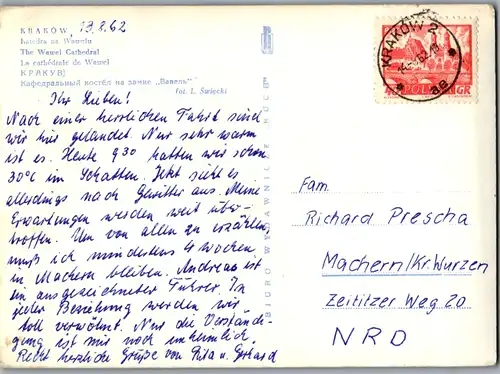 KRAKÓW, 13.8.62
Katedra na Wawelu
The Wawel Cathedral
La cathédrale de Wawel
КРАКУВ)
Кафедральный костёл на замке „Вавель"
fot. L. Święcki
Ihr Lieben!
Nach einer herrlichen Fahrt sind
wir hier gelandet. Nur sehr warm
ist es. Heute 9³⁰ hatten wir schon
30°C im Schatten. Jetzt sieht es
allerdings nach Gewitter aus. Meine
Erwartungen werden weit über-
troffen. Um von allen zu erzählen,
muß ich mindestens 4 Wochen
in Machern bleiben. Andreas ist
ein ausgezeichneter Führer. In
jeder Beziehung werden wir
toll verwöhnt. Nur die Verständi-
gung ist mir noch unheimlich.
Recht herzliche Grüße von Rita u. Gerhard
BIURO WYDAWNICZE RUCH
KRAKÓW 2
POL
GR
Fam.
Richard Prescha
Machern/Kr. Wurzen
Zeititzer Weg 20
NRD